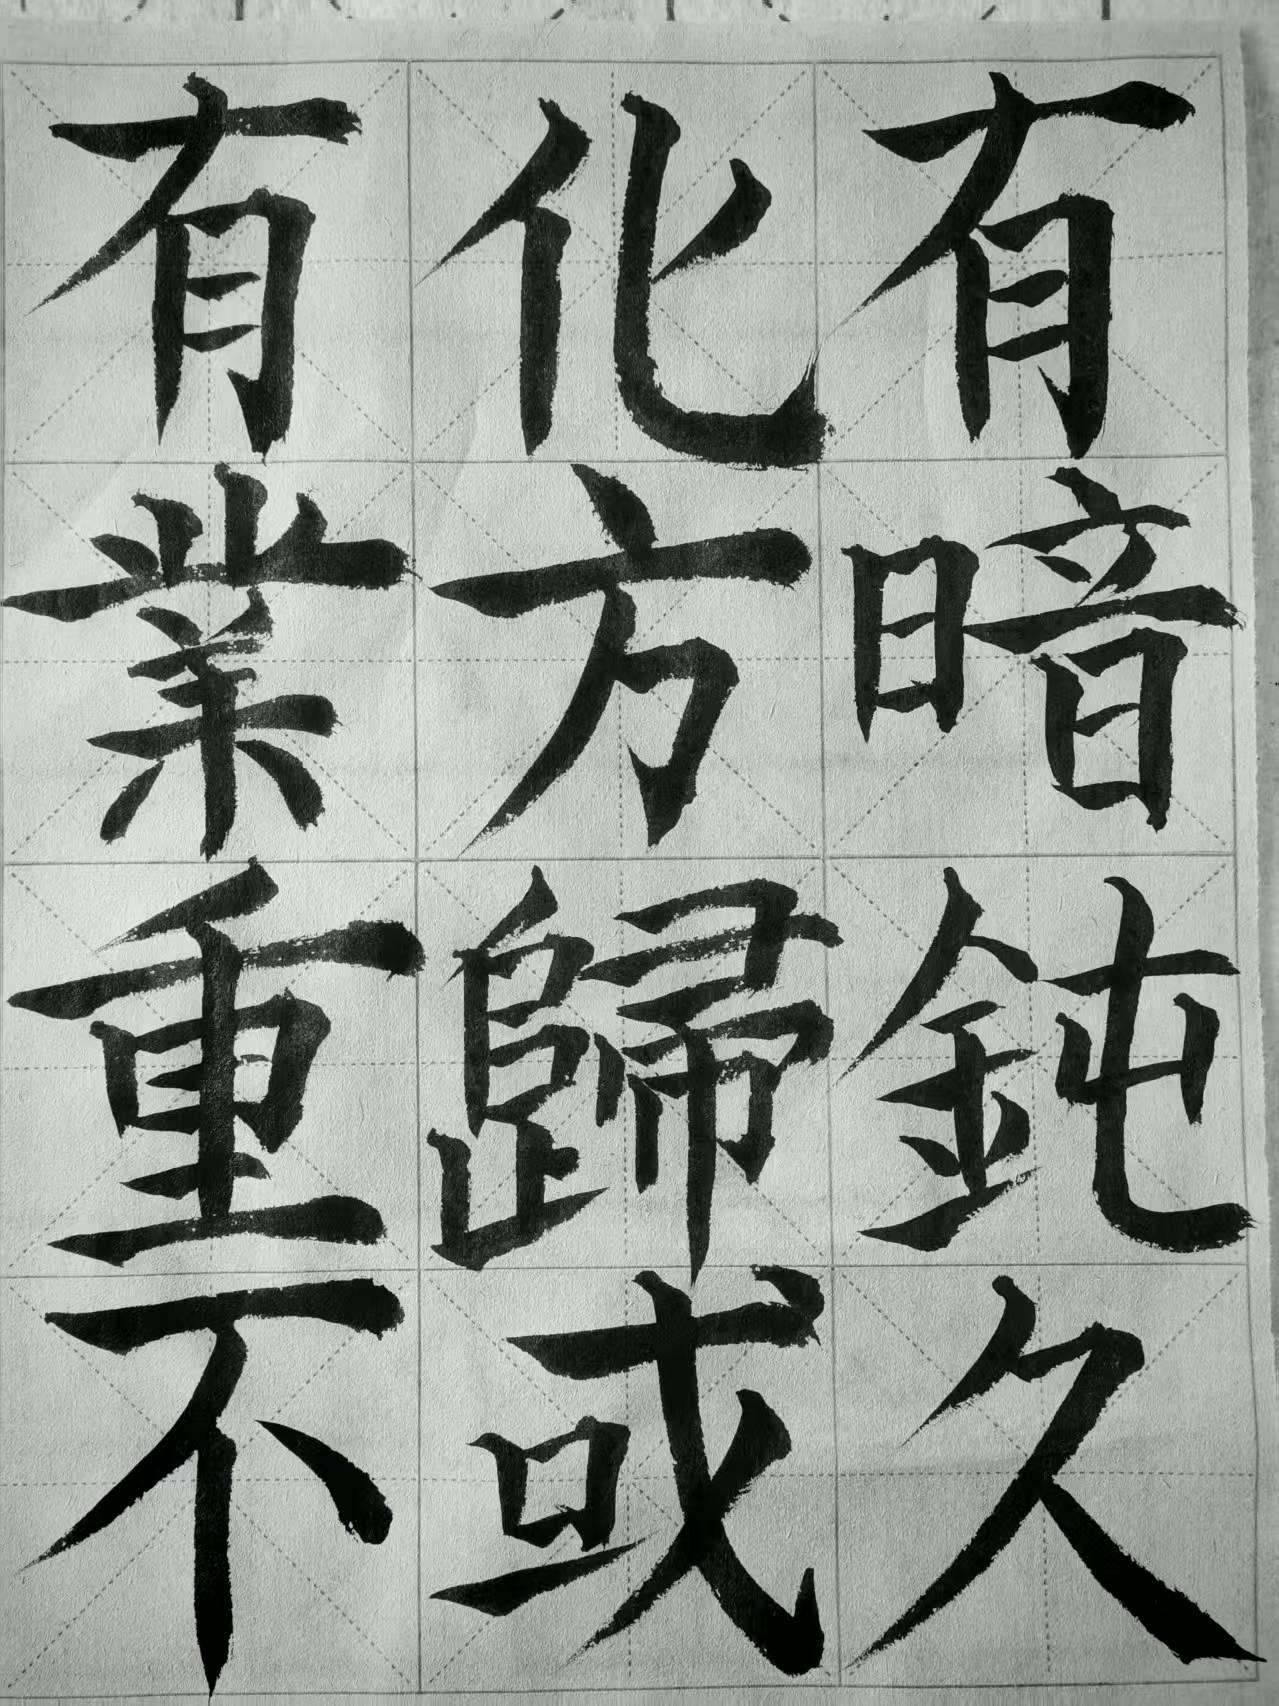 有暗鈍久
化方歸或
有業重不